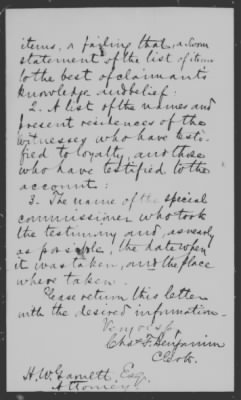 items, a failing that, a sworn
statement of the list of items
to the best of claimant's
knowledge and belief.
2. A list of the names and
present residences of the
witnesses who have testi-
fied to loyalty, and those
who have testified to the
account:
3. The name of the special
commissioner who took
the testimony and, as nearly
as possible, the date when
it was taken, and the place
where taken.
Please return this letter
with the desired information.
Very resp
Chas. F. Benjamin
Clerk.
H. W. Garnett Esq.
Attorney